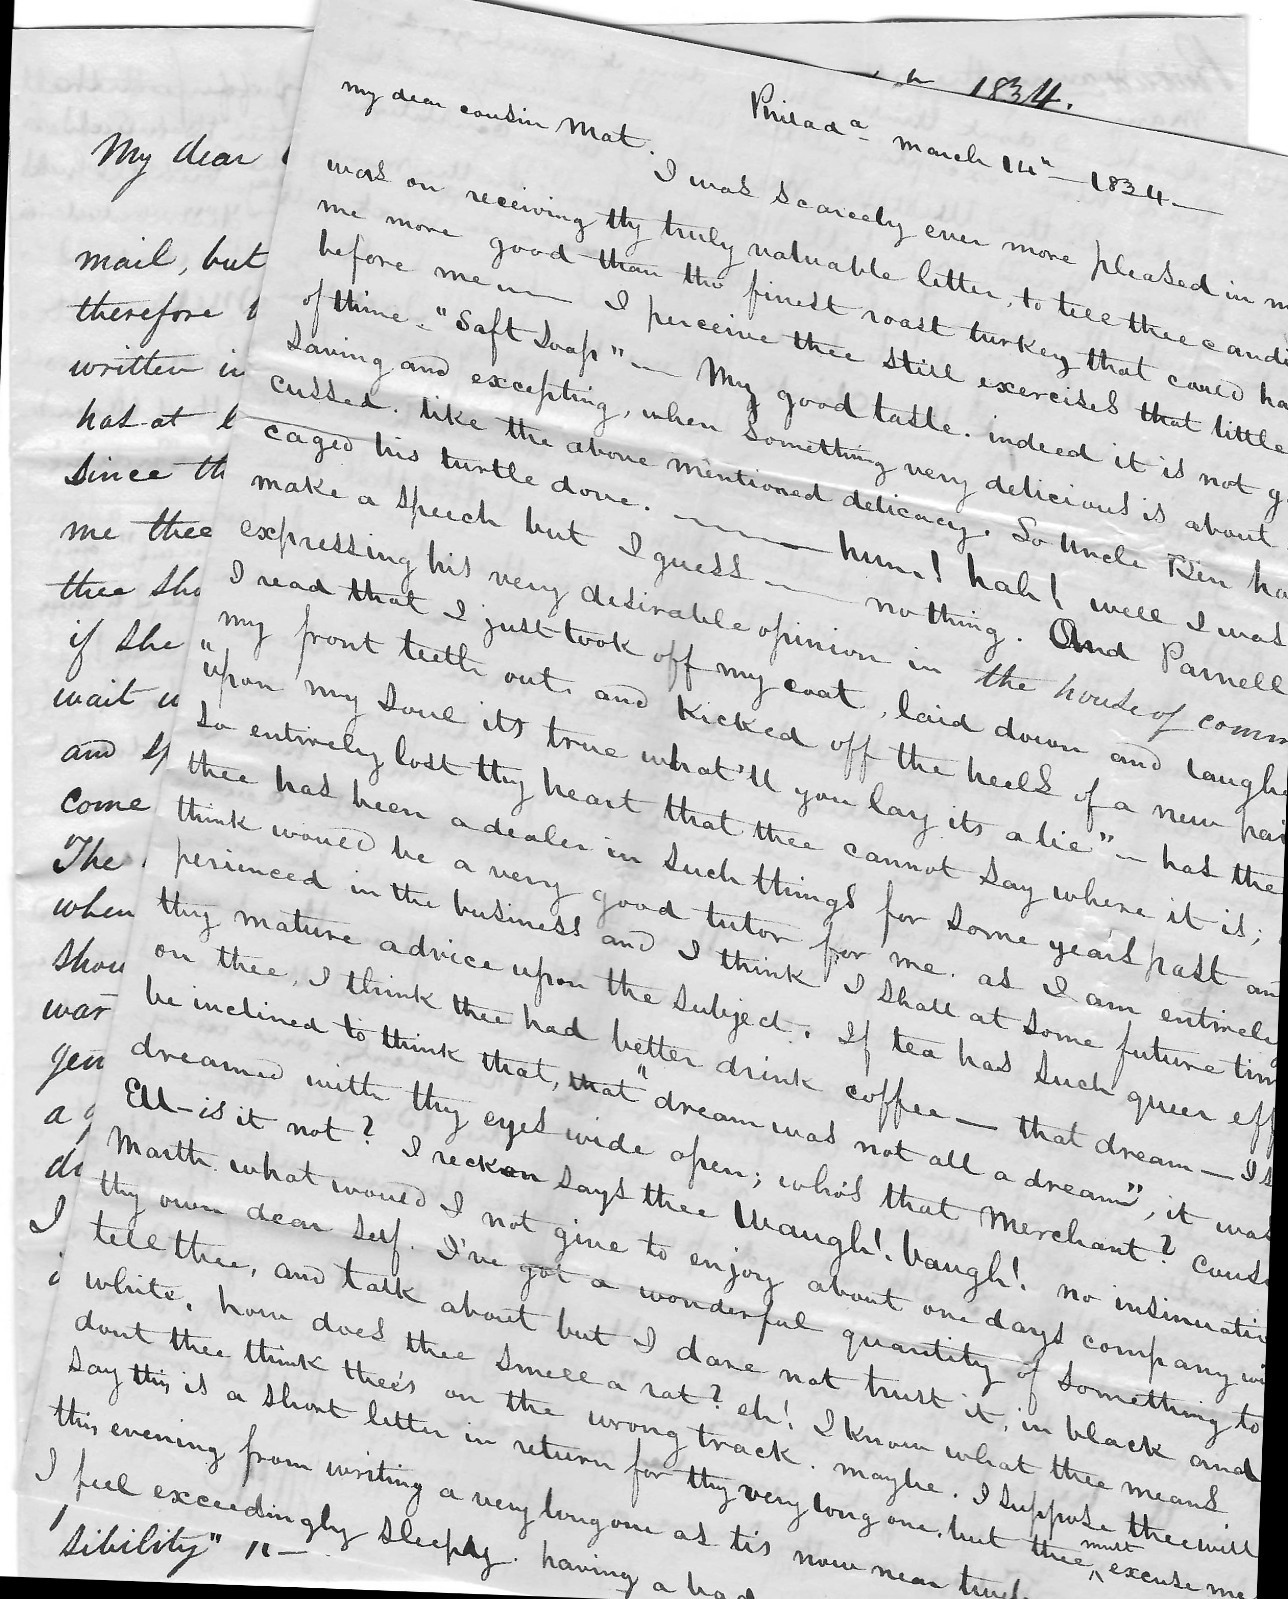 1834.
My dear
mail, but
therefore
written in
has at
since th
me thee
thee sho
if she
wait
and
come
The
when
shou
war
gen
a
I
sibility" "—
Philad a March 14th — 1834 —
My dear cousin Mat.
I was scarcely ever more pleased in m
was on receiving thy truly valuable letter, to tell thee candi
me more good than the finest roast turkey that could ha
before me — I perceive thee still exercises that little
of thine - "Saft Soap" — My good taste. indeed it is not g
Saving and excepting, when something very delicious is about
cussed. like the above mentioned delicacy. So Uncle Ben ha
caged his turtle dove. — hum! hah! well I was
make a speech but I guess — nothing. And Parnell
expressing his very desirable opinion in the house of comm
I read that I just took off my coat, laid down and laughe
my front teeth out, and kicked off the heels of a new pai
"upon my soul its true what'll you lay its a lie" — has thee
so entirely lost thy heart that thee cannot say where it is;
thee has been a dealer in such things for some years past an
think would be a very good tutor for me. as I am entirely
perienced in the business and I think I shall at some future tim
thy mature advice upon the subject. If tea has such queer eff
on thee, I think thee had better drink coffee — that dream — I s
be inclined to think that, that "dream was not all a dream", it was
dreamed with thy eyes wide open; who's that Merchant? cous
Ell - is it not? I reckon says thee Waugh! baugh! no insinuati
Marth what would I not give to enjoy about one days company wi
thy own dear self. I've got a wonderful quantity of something to
tell thee, and talk about but I dare not trust it, in black and
white, how does thee smell a rat? eh! I know what thee means
dont thee think thee's on the wrong track. maybe. I suppose thee will
say this is a short letter in return for thy very long one, but thee must excuse me
this evening from writing a very long one as tis now near
I feel exceedingly sleepy. having a bad